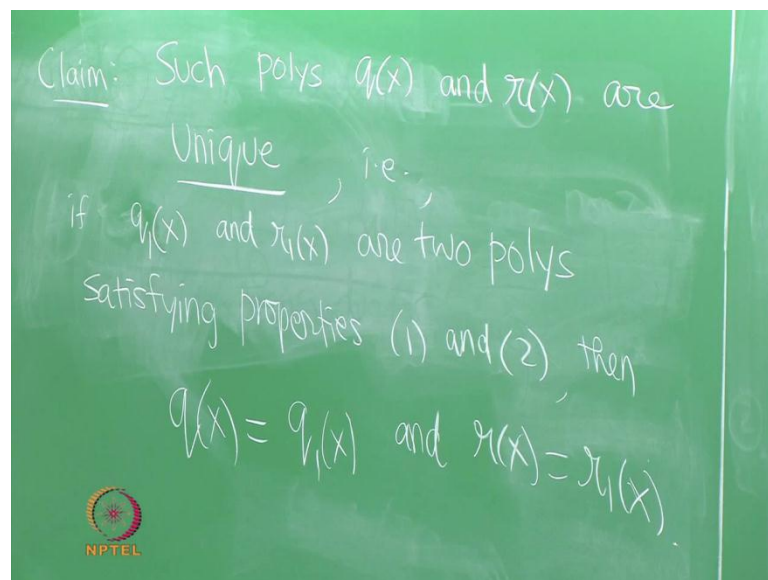 Claim: Such polys q(x) and r(x) are
Unique, i.e.,
if q₁(x) and r₁(x) are two polys
satisfying properties (1) and (2), then
q(x) = q₁(x) and r(x) = r₁(x).
NPTEL